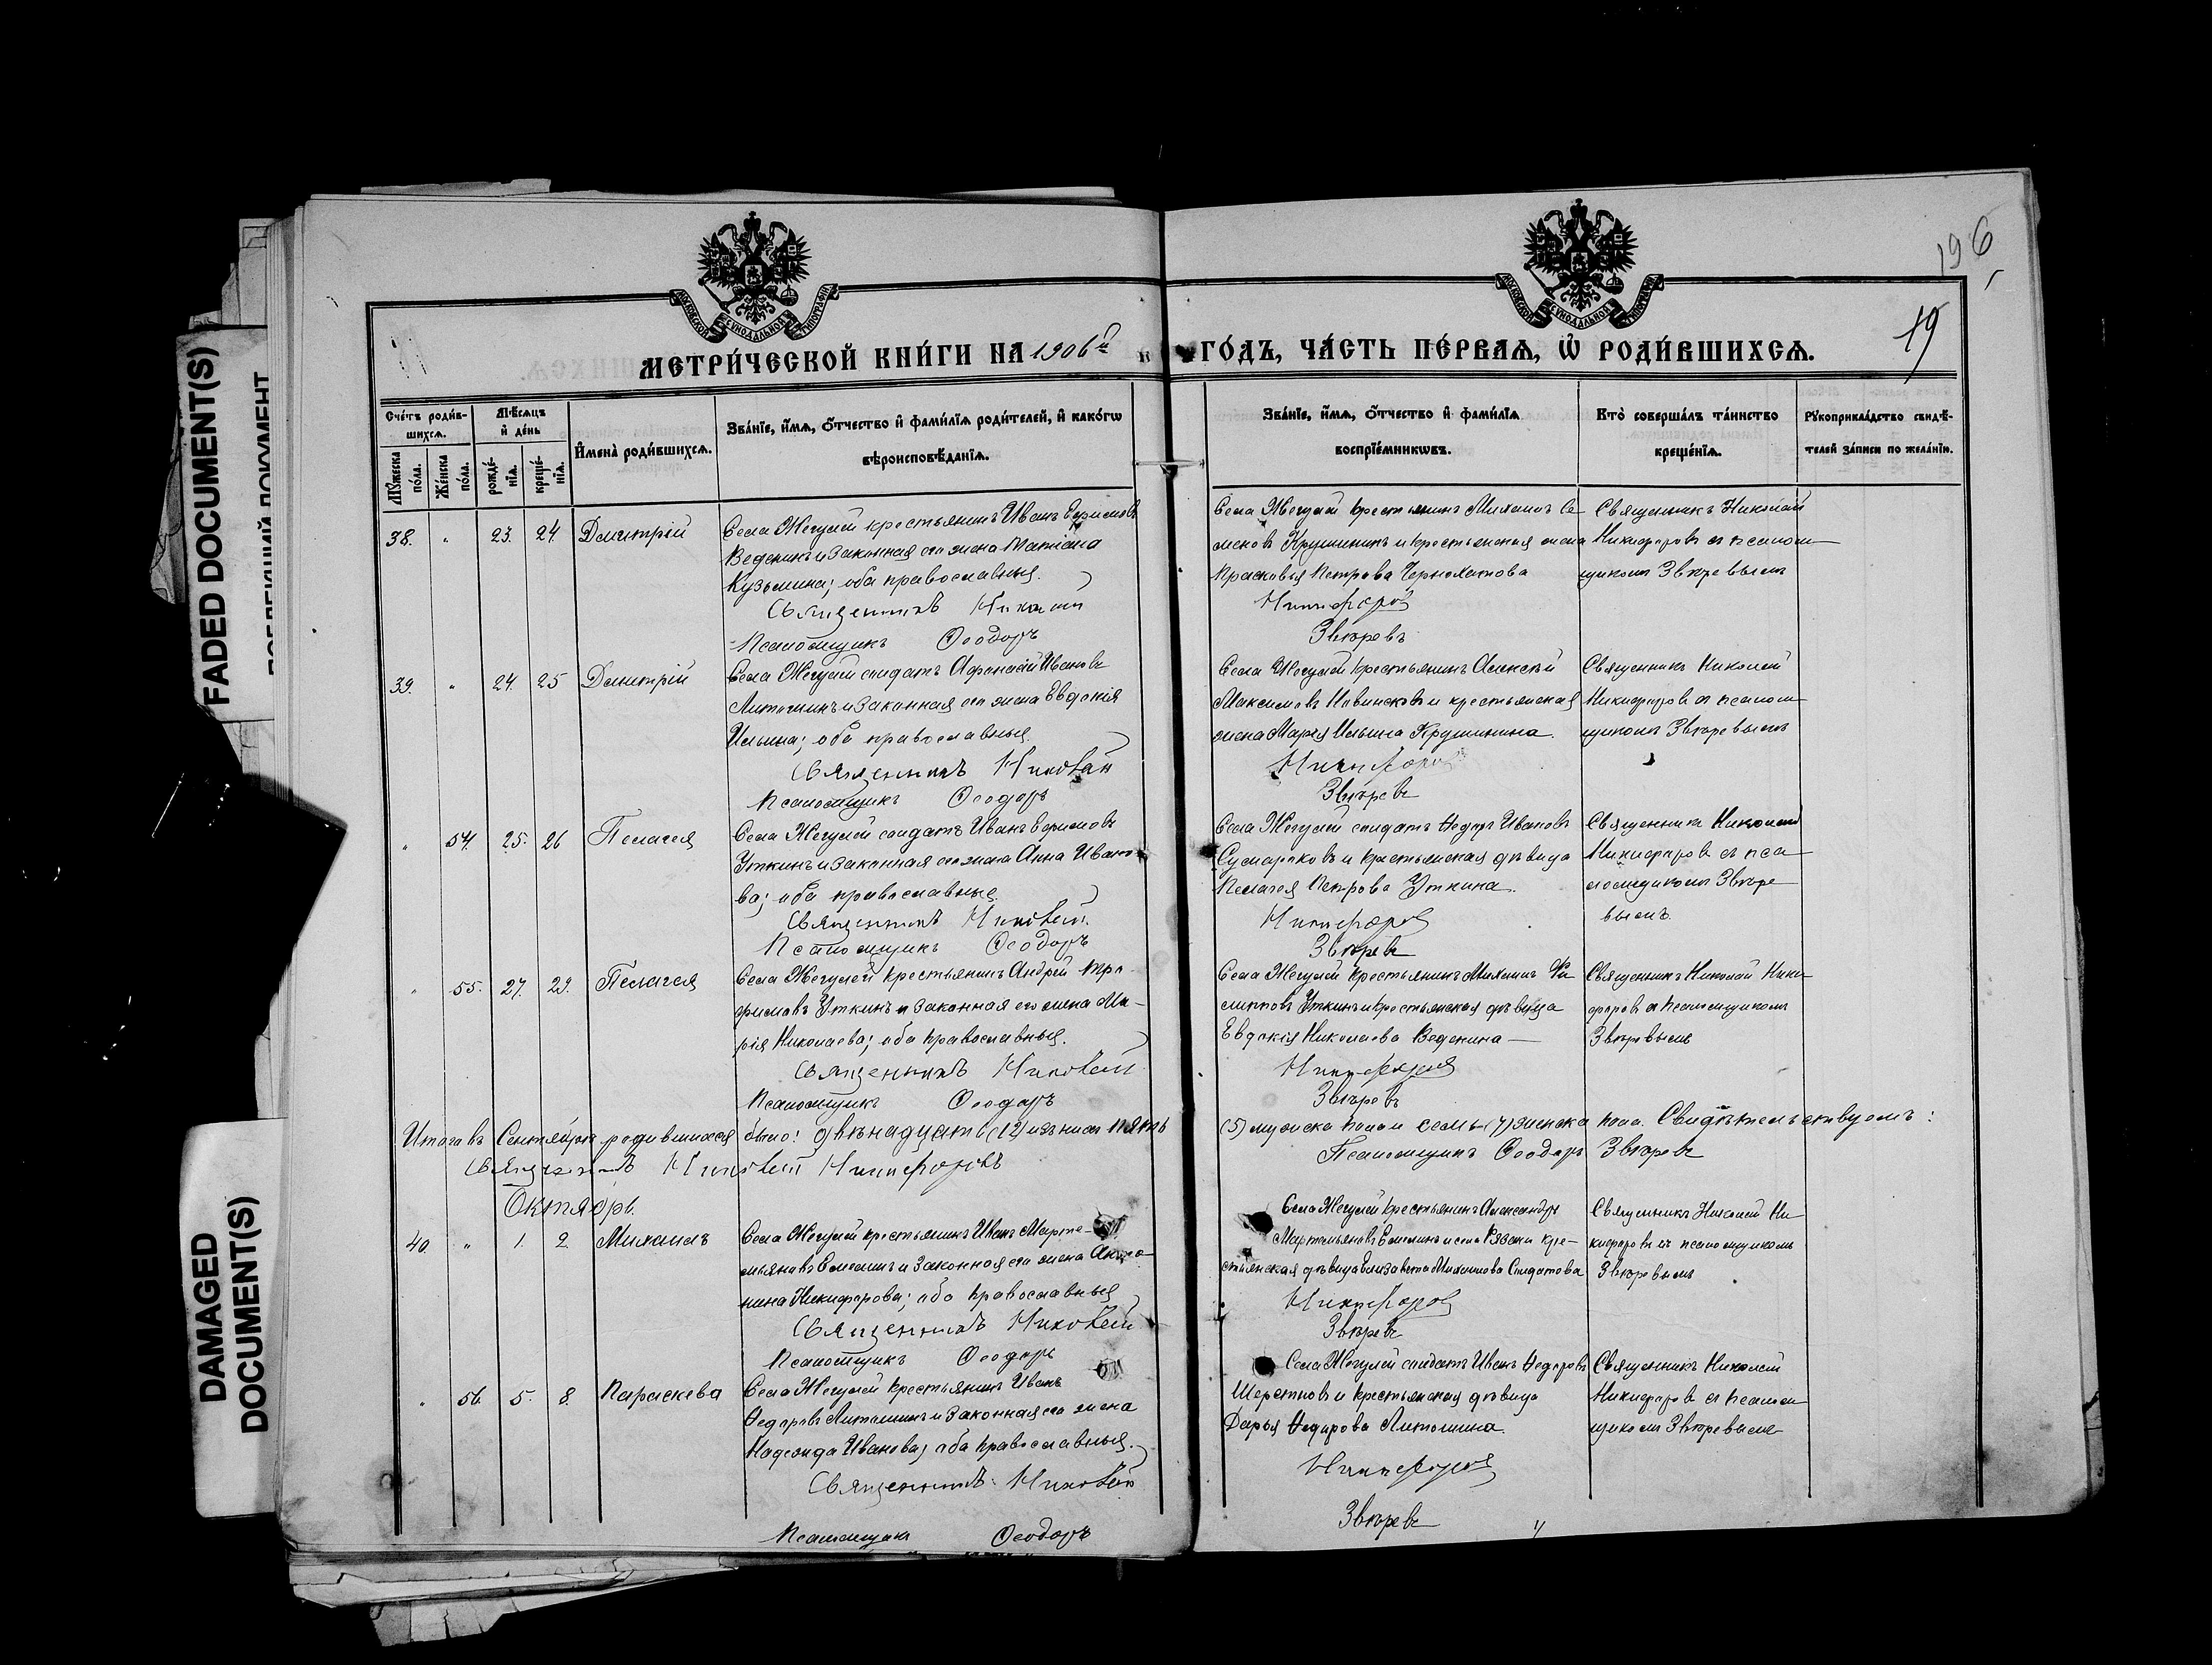 FADED DOCUMENT(S)
DAMAGED
DOCUMENT(S)
196
19
МОСКОВСКОЙ СУНОДАЛЬНОЙ ТИПОГРАФІИ
МОСКОВСКОЙ СУНОДАЛЬНОЙ ТИПОГРАФІИ
МЕТРИ́ЧЕСКОЙ КНИ́ГИ НА 1906й ГО́ДЪ, ЧА́СТЬ ПЕ́РВАѦ, Ѡ҆ РОДИ́ВШИХСѦ.
Сче́тъ роди́вшихсѧ.
Мѣ́сѧцъ и҆ де́нь
Мꙋ́жеска по́ла.
Же́нска по́ла.
рожде́нїѧ.
креще́нїѧ.
И҆мена̀ роди́вшихсѧ.
Зва́нїе, и҆́мѧ, ѻ҆́тчество и҆ фами́лїѧ роди́телей, и҆ како́гѡ
вѣроисповѣ́данїѧ.
Зва́нїе, и҆́мѧ, ѻ҆́тчество и҆ фами́лїѧ
воспрїе́мникѡвъ.
Кто̀ соверша́лъ та́инство
креще́нїѧ.
Рꙋкоприкла́дство свидѣ́телей за́писи по жела́нїю.
38. " 23. 24. Димитрій
Села Жегулей крестьянинъ Иванъ Ефимовъ
Веденинъ и законная его жена
Кузьмина; оба православные.
Священникъ Николай
Псаломщикъ Ѳеодоръ
Села Жегулей крестьянинъ Михаилъ Се-
меновъ Крушининъ и крестьянская жена
Прасковья Петрова
Никифоровъ
Звѣревъ
Священникъ Николай
Никифоровъ съ псалом-
щикомъ Звѣревымъ
39. " 24. 25 Димитрій
Села Жегулей солдатъ Афанасій Ивановъ
Литошинъ и законная его жена Евдокія
Ильина; оба православные.
Священникъ Николай
Псаломщикъ Ѳеодоръ
Села Жегулей крестьянинъ Алексѣй
Максимовъ и крестьянская
жена Марѳа Ильина Крушинина.
Никифоровъ
Звѣревъ
Священникъ Николай
Никифоровъ съ псалом-
щикомъ Звѣревымъ
" 54. 25. 26 Пелагея
Села Жегулей солдатъ Иванъ Ефимовъ
Уткинъ и законная его жена Анна Ивано-
ва; оба православные.
Священникъ Николай
Псаломщикъ Ѳеодоръ
Села Жегулей солдатъ Ѳедоръ Ивановъ
Сумароковъ и крестьянская дѣвица
Пелагея Петрова Уткина.
Никифоровъ
Звѣревъ
Священникъ Николай
Никифоровъ съ пса-
ломщикомъ Звѣре-
вымъ.
" 55. 27. 29. Пелагея
Села Жегулей крестьянинъ Андрей Тро-
фимовъ Уткинъ и законная его жена Ма-
рія Николаева; оба православные.
Священникъ Николай
Псаломщикъ Ѳеодоръ
Села Жегулей крестьянинъ Михаилъ Фи-
липповъ Уткинъ и крестьянская дѣвица
Евдокія Николаева Веденина
Никифоровъ
Звѣревъ
Священникъ Николай Ники-
форовъ съ псаломщикомъ
Звѣревымъ
Итого въ Сентябрѣ родившихся было: двѣнадцать (12) изъ нихъ пять (5) мужска пола и семь (7) женска пола. Свидѣтельствуемъ:
Священникъ Николай Никифоровъ Псаломщикъ Ѳеодоръ Звѣревъ
Октябрь.
40. " 1. 2. Михаилъ
Села Жегулей крестьянинъ Иванъ Марте-
мьяновъ Емелинъ и законная его жена
Никифорова; оба православные
Священникъ Николай
Псаломщикъ Ѳеодоръ
Села Жегулей крестьянинъ Александръ
Мартемьяновъ Емелинъ и села Рязани кре-
стьянская дѣвица Елизавета Михаилова Солдатова
Никифоровъ
Звѣревъ
Священникъ Николай Ни-
кифоровъ съ псаломщикомъ
Звѣревымъ
" 56. 5. 8. Параскева
Села Жегулей крестьянинъ Иванъ
Ѳедоровъ Литошинъ и законная его жена
Надежда Иванова; оба православные.
Священникъ Николай
Псаломщикъ Ѳеодоръ
Села Жегулей солдатъ Иванъ Ѳедоровъ
Шерстневъ и крестьянская дѣвица
Дарья Ѳедорова Литошина.
Никифоровъ
Звѣревъ
Священникъ Николай
Никифоровъ съ псалом-
щикомъ Звѣревымъ